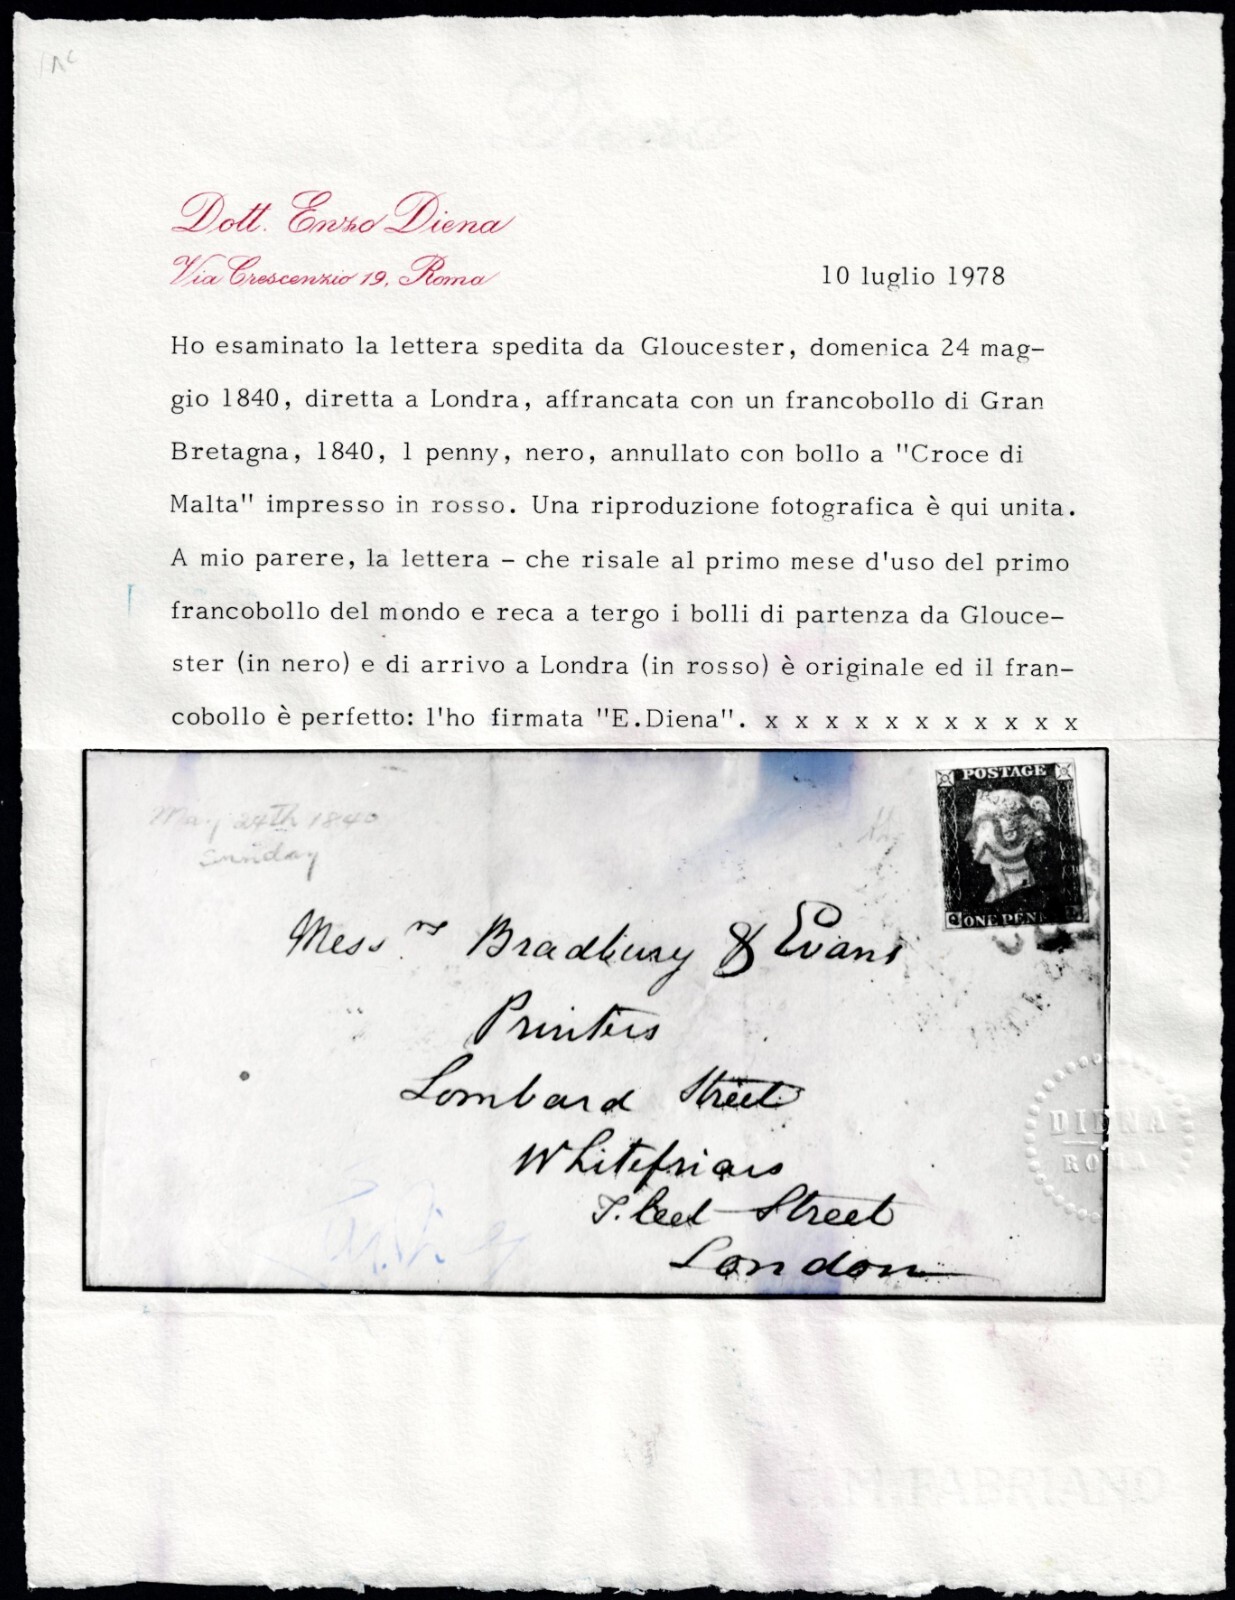 Dott. Enzo Diena
Via Crescenzio 19, Roma
10 luglio 1978
Ho esaminato la lettera spedita da Gloucester, domenica 24 mag-
gio 1840, diretta a Londra, affrancata con un francobollo di Gran
Bretagna, 1840, 1 penny, nero, annullato con bollo a "Croce di
Malta" impresso in rosso. Una riproduzione fotografica è qui unita.
A mio parere, la lettera - che risale al primo mese d'uso del primo
francobollo del mondo e reca a tergo i bolli di partenza da Glouce-
ster (in nero) e di arrivo a Londra (in rosso) è originale ed il fran-
cobollo è perfetto: l'ho firmata "E.Diena". x x x x x x x x x x x
POSTAGE
May 24th 1840
Sunday
Q ONE PEN
Messrs Bradbury & Evans
Printers
Lombard Street
Whitefriars
Fleet Street
London
DIENA
ROMA
C.M.FABRIANO